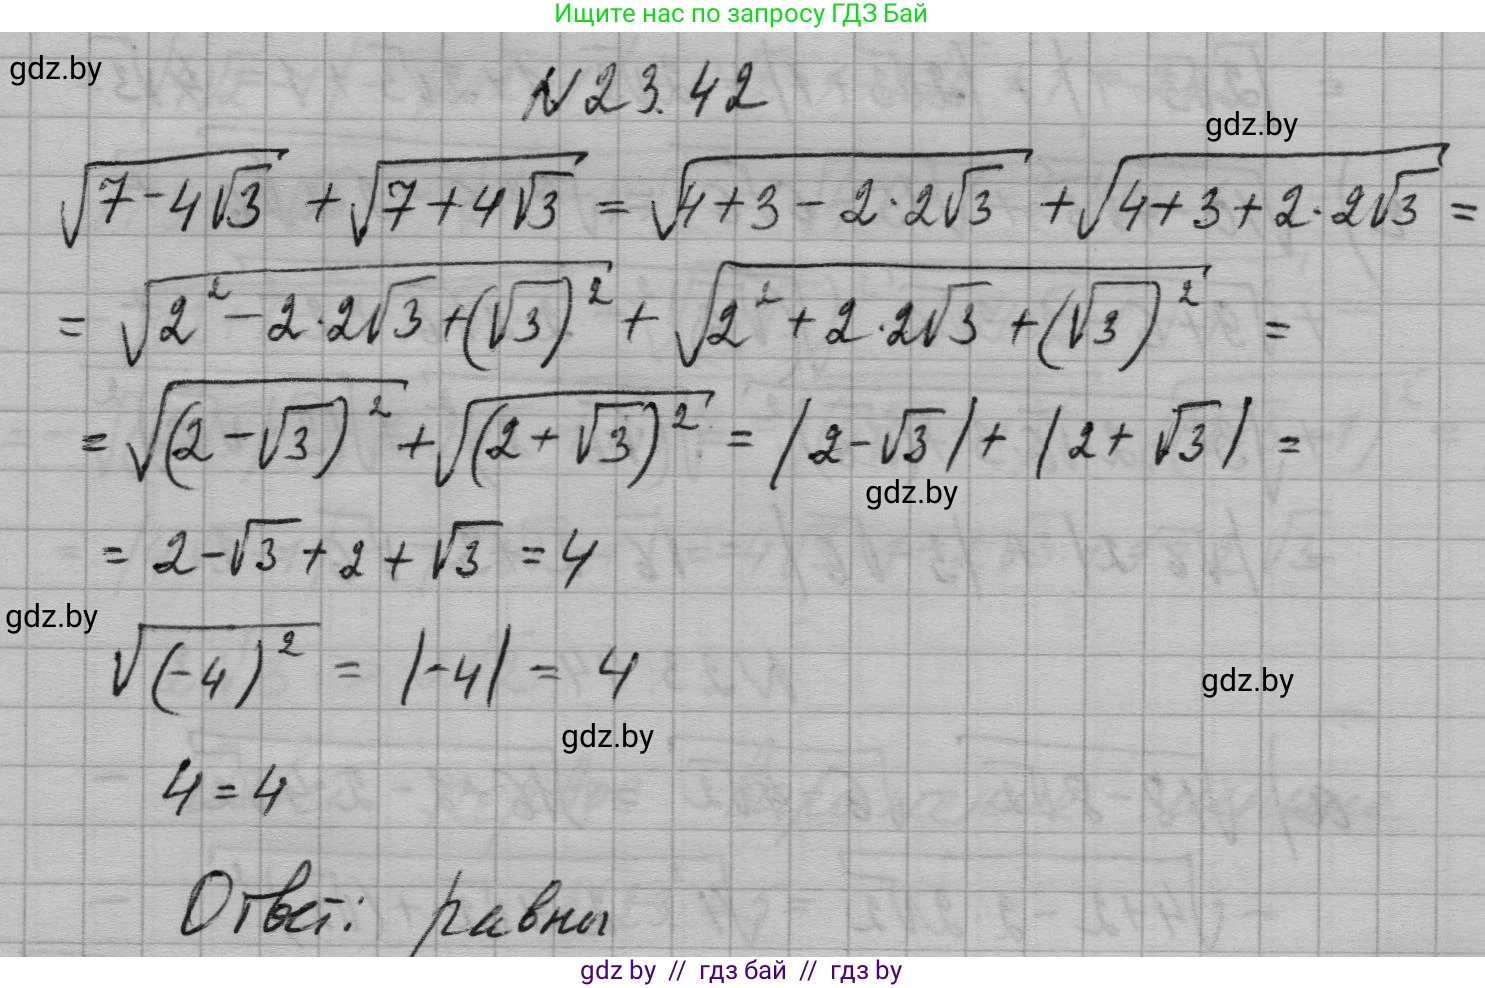 Ищите нас по запросу ГДЗ Бай
gdz.by
N 23.42
gdz.by
√(7-4√3) + √(7+4√3) = √(4+3-2·2√3) + √(4+3+2·2√3) =
= √(2²-2·2√3+(√3)²) + √(2²+2·2√3+(√3)²) =
= √((2-√3)²) + √((2+√3)²) = |2-√3| + |2+√3| =
gdz.by
= 2-√3+2+√3 = 4
gdz.by
√((-4)²) = |-4| = 4
gdz.by
gdz.by
4=4
Ответ: равны
gdz by // гдз бай // гдз by